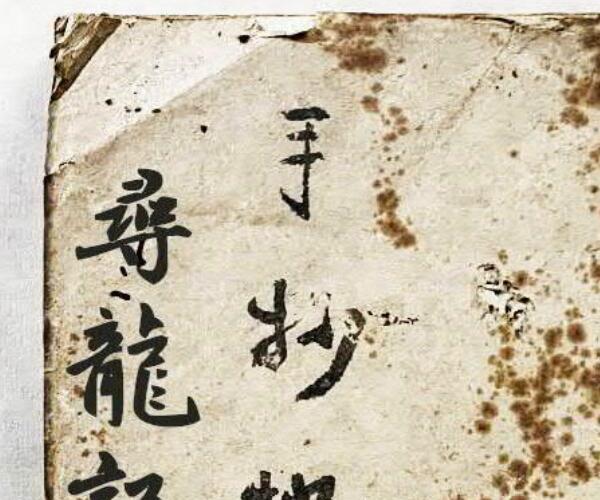 手抄
尋龍記